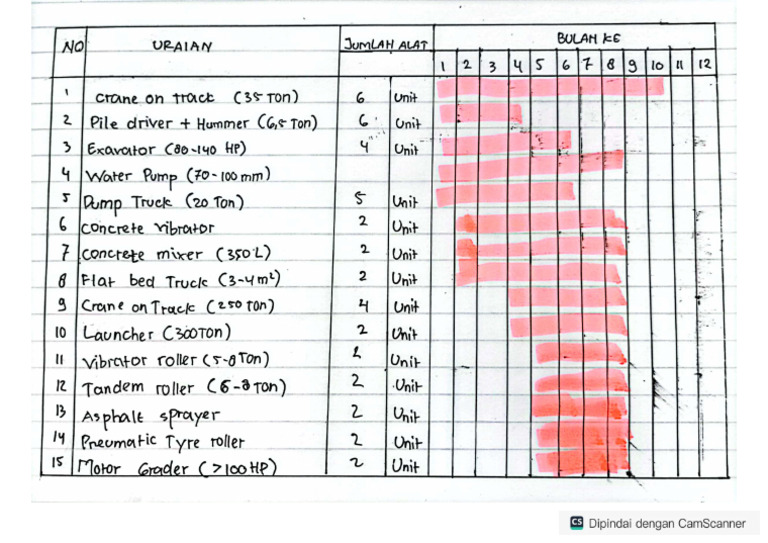 NO URAIAN JUMLAH ALAT BULAN KE
1 2 3 4 5 6 7 8 9 10 11 12
1 Crane on track (35 Ton) 6 Unit
2 Pile driver + Hummer (6,5 Ton) 6 Unit
3 Exavator (80-140 HP) 4 Unit
4 Water Pump (70-100 mm)
5 Dump Truck (20 Ton) 5 Unit
6 Concrete vibrator 2 Unit
7 Concrete mixer (350 L) 2 Unit
8 Flat bed Truck (3-4 m²) 2 Unit
9 Crane on Track (250 Ton) 4 Unit
10 Launcher (300 TON) 2 Unit
11 Vibrator roller (5-8 Ton) 2 Unit
12 Tandem roller (6-8 Ton) 2 Unit
13 Asphalt sprayer 2 Unit
14 Pneumatic Tyre roller 2 Unit
15 Motor Grader (>100 HP) 2 Unit
CS Dipindai dengan CamScanner